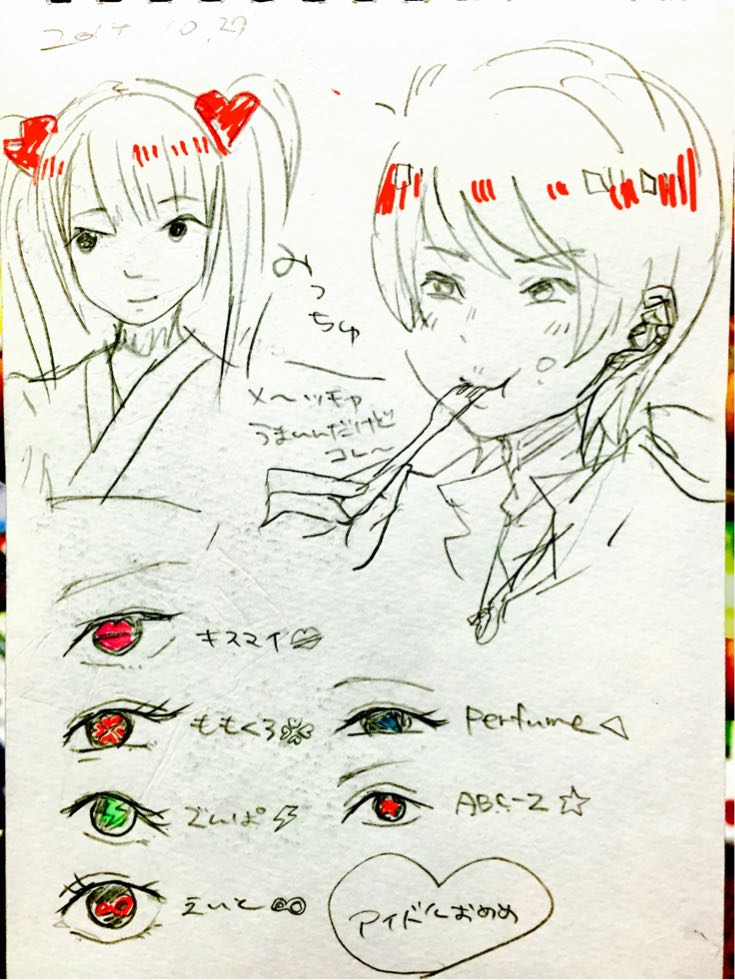 2014.10.29
みっちゅ
メ〜ッチャ
うまいんだけど
コレ〜
キスマイ
ももくろ
Perfume
でんぱ
ABC-Z
えいと
アイドルおめめ